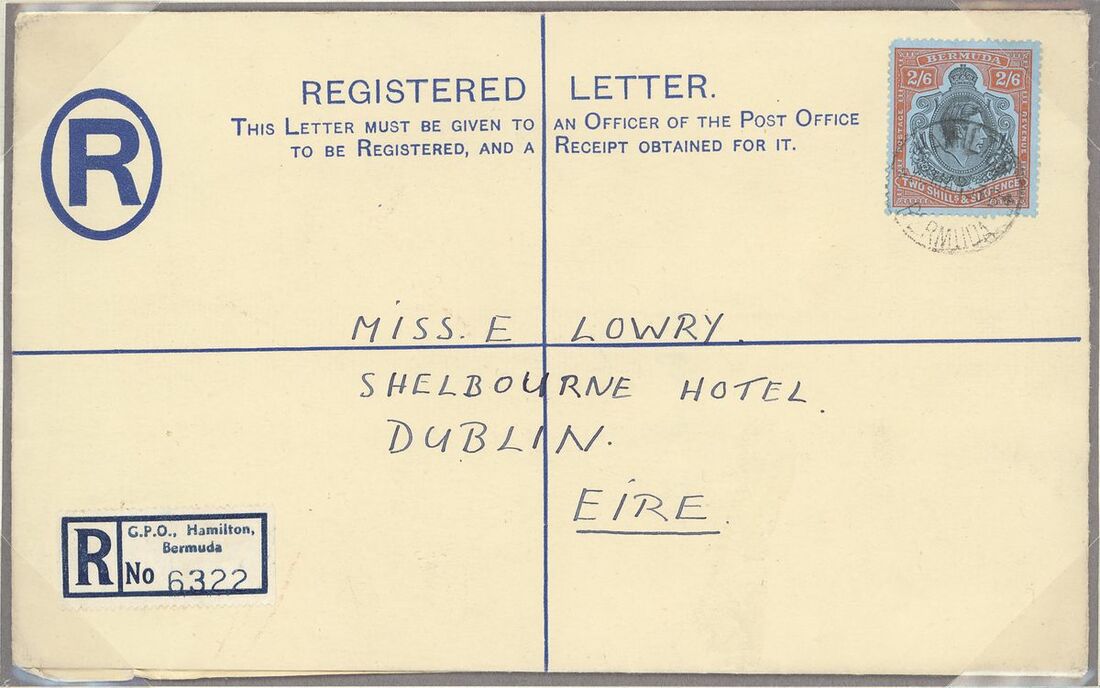 R
REGISTERED LETTER.
THIS LETTER MUST BE GIVEN TO AN OFFICER OF THE POST OFFICE
TO BE REGISTERED, AND A RECEIPT OBTAINED FOR IT.
BERMUDA
2/6 2/6
POSTAGE REVENUE
TWO SHILLS & SIXPENCE
BERMUDA
MISS. E LOWRY.
SHELBOURNE HOTEL.
DUBLIN.
EIRE.
R
G.P.O., Hamilton,
Bermuda
No 6322